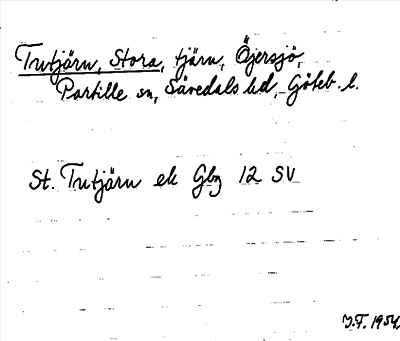 Trutjärn, Stora, tjärn, Öjersjö,
Partille sn, Sävedals hd, Göteb. l.
St. Trutjärn ek Gbg 12 SV
J.F. 1954.